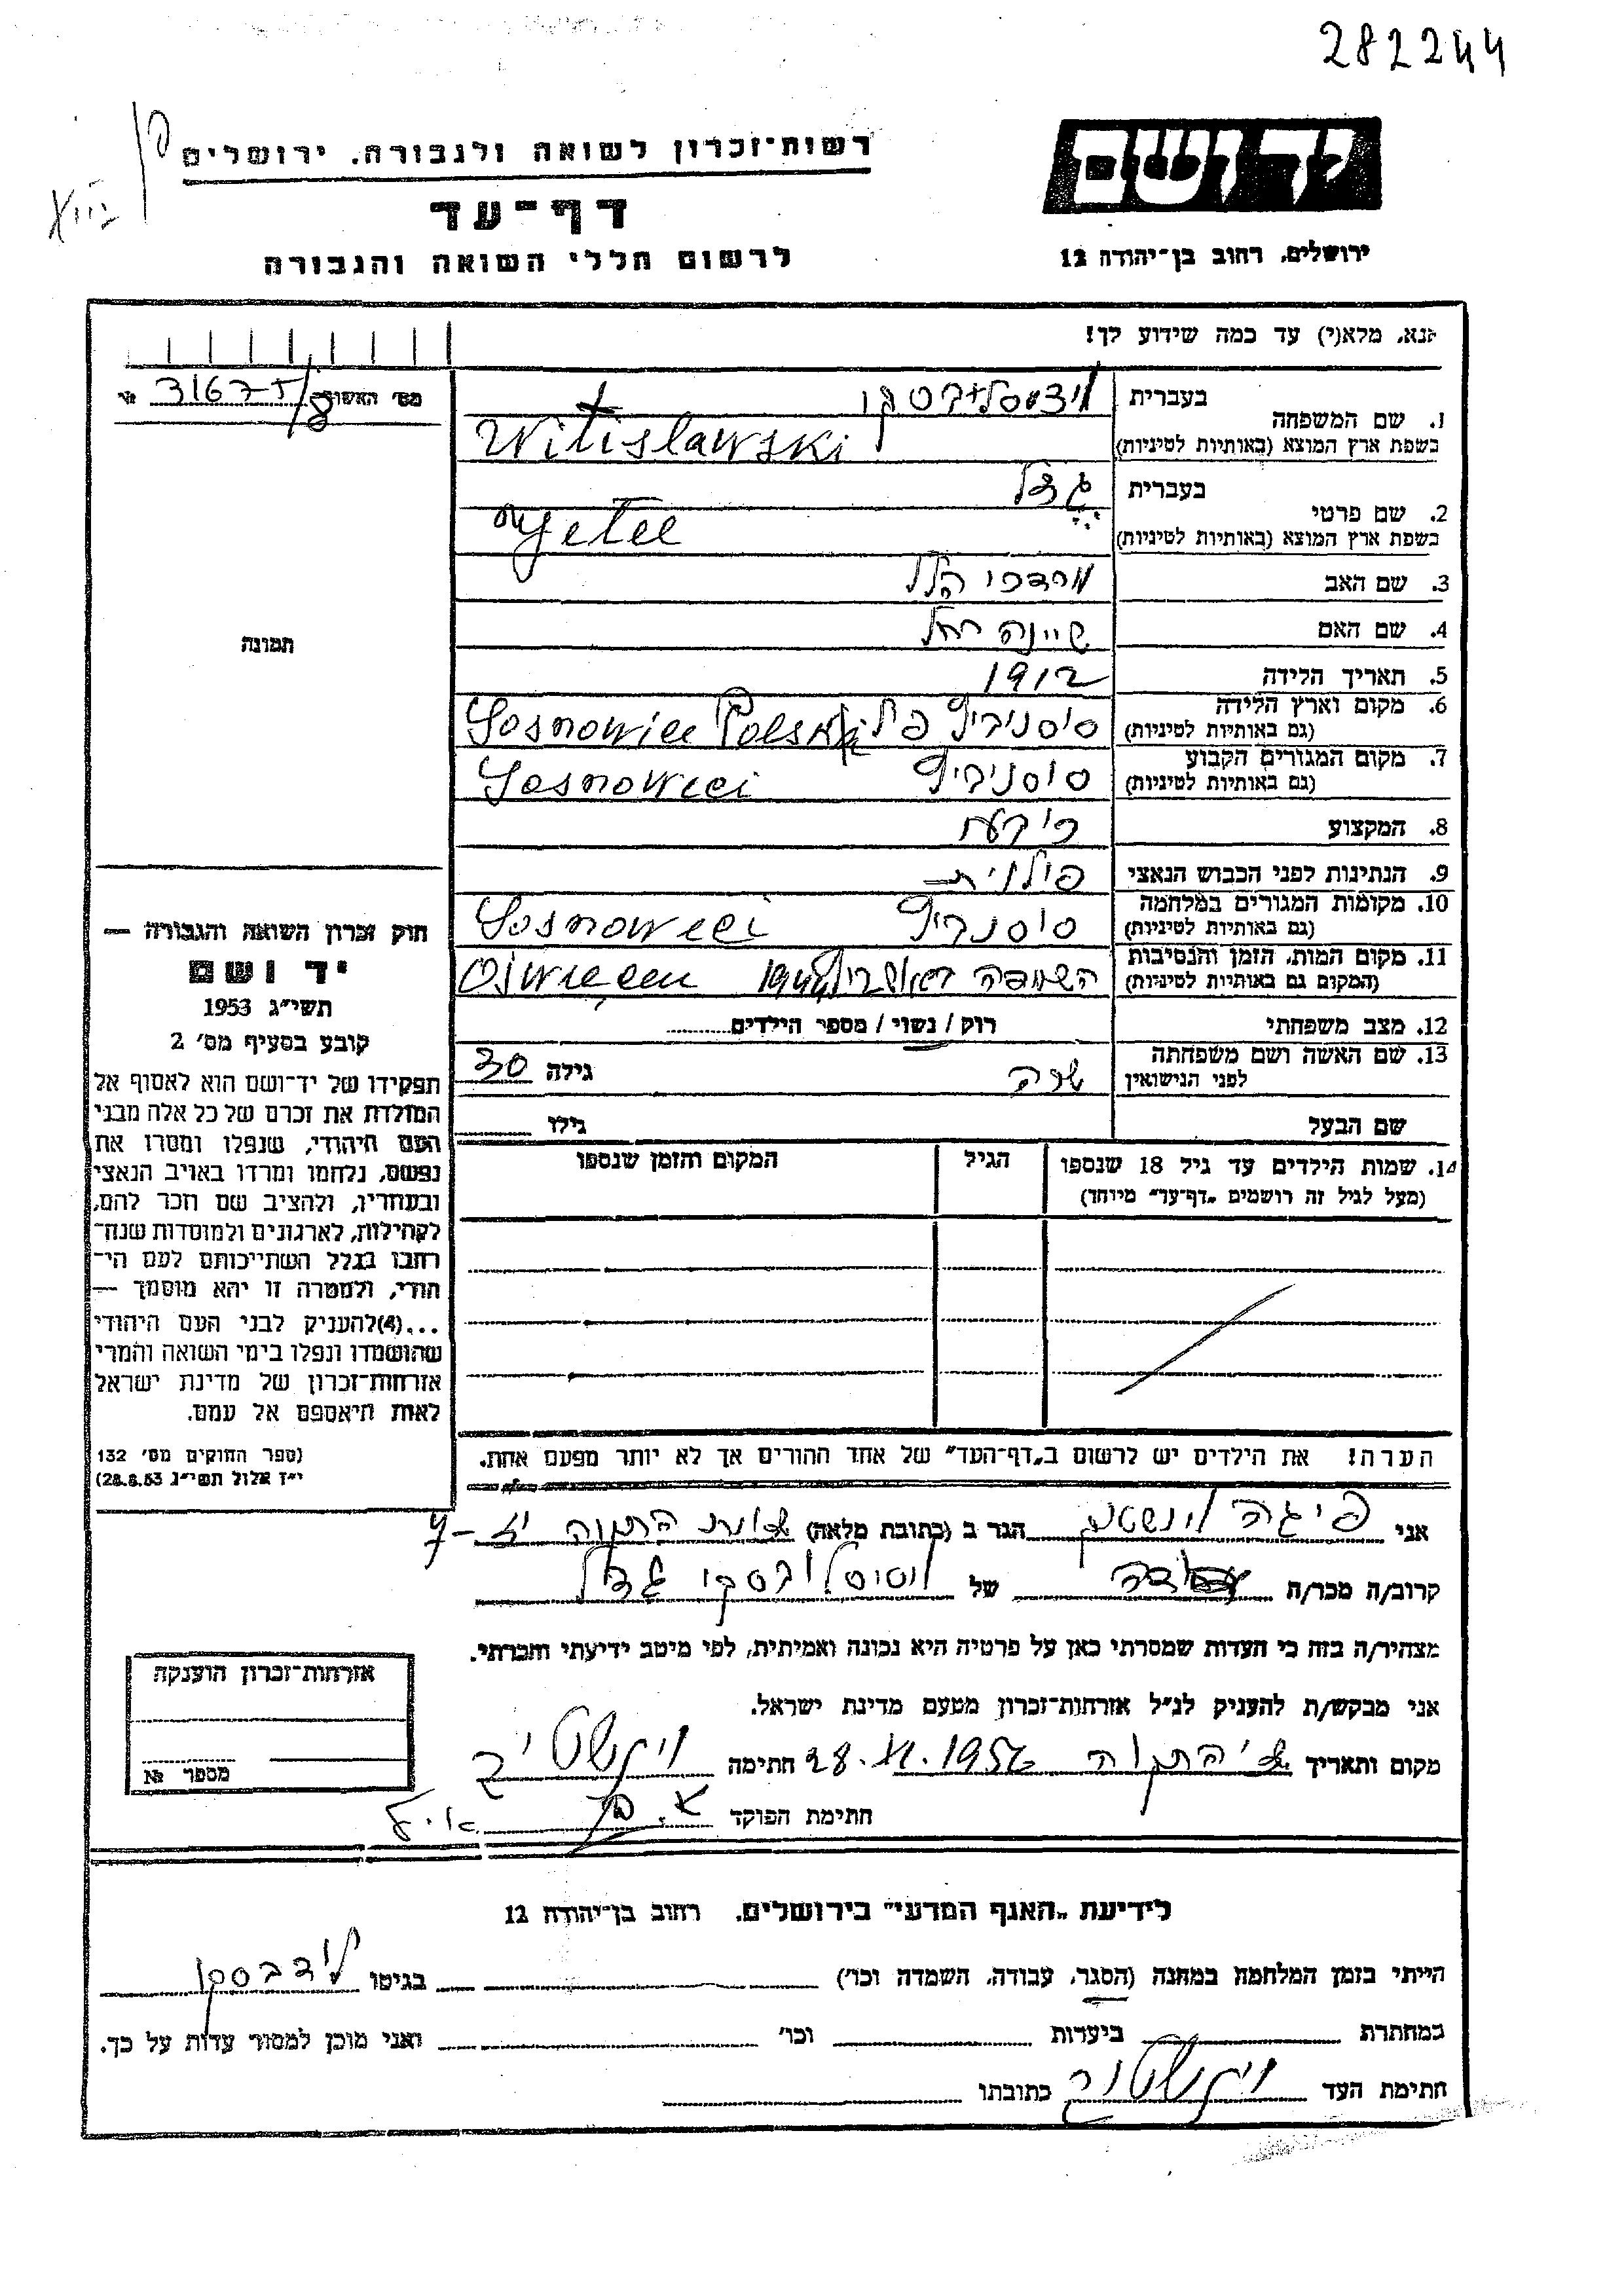 282244
רשות־זכרון לשואה ולגבורה, ירושלים
יד ושם
דף־עד
לרשום חללי השואה והגבורה
ירושלים, רחוב בן־יהודה 12
אנא, מלא(י) עד כמה שידוע לך!
מס׳ האשור 31675/8 №
1. שם המשפחה
בעברית
בשפת ארץ המוצא (באותיות לטיניות) Witislawski
2. שם פרטי
בעברית
בשפת ארץ המוצא (באותיות לטיניות)
3. שם האב מרדכי הלל
4. שם האם שיינה רחל
5. תאריך הלידה 1912
6. מקום וארץ הלידה
(גם באותיות לטיניות) Sosnowiec
7. מקום המגורים הקבוע
(גם באותיות לטיניות) סוסנוביץ Sosnoweci
8. המקצוע
9. הנתינות לפני הכבוש הנאצי פולנית
10. מקומות המגורים במלחמה
(גם באותיות לטיניות) סוסנוביץ Sosnoweci
11. מקום המות, הזמן והנסיבות
(המקום גם באותיות לטיניות)
12. מצב משפחתי רוק / נשוי / מספר הילדים
13. שם האשה ושם משפחתה
לפני הנישואין שרה גילה 30
שם הבעל גילו
14. שמות הילדים עד גיל 18 שנספו הגיל המקום והזמן שנספו
(מעל לגיל זה רושמים „דף־עד״ מיוחד)
הערה! את הילדים יש לרשום ב„דף־העד״ של אחד ההורים אך לא יותר מפעם אחת.
תמונה
חוק זכרון השואה והגבורה —
יד ושם
תשי״ג 1953
קובע בסעיף מס׳ 2
תפקידו של יד־ושם הוא לאסוף אל
המולדת את זכרם של כל אלה מבני
העם היהודי, שנפלו ומסרו את
נפשם, נלחמו ומרדו באויב הנאצי
ובעוזריו, ולהציב שם וזכר להם,
לקהילות, לארגונים ולמוסדות שנח־
רבו בגלל השתייכותם לעם הי־
הודי, ולמטרה זו יהא מוסמך —
...(4)להעניק לבני העם היהודי
שהושמדו ונפלו בימי השואה והמרי
אזרחות־זכרון של מדינת ישראל
לאות היאספם אל עמם.
(ספר החוקים מס׳ 132
י״ז אלול תשי״ג 28.8.53)
אני הגר ב (כתובת מלאה)
קרוב/ה מכר/ה של
מצהיר/ה בזה כי העדות שמסרתי כאן על פרטיה היא נכונה ואמיתית, לפי מיטב ידיעתי והכרתי.
אני מבקש/ת להעניק לנ״ל אזרחות־זכרון מטעם מדינת ישראל.
מקום ותאריך 28.XI.1956 חתימה
חתימת הפוקד
אזרחות־זכרון הוענקה
מספר №
לידיעת „האגף המדעי״ בירושלים, רחוב בן־יהודה 12
הייתי בזמן המלחמה במחנה (הסגר, עבודה, השמדה וכו׳) בגיטו
במחתרת ביערות וכו׳ ואני מוכן למסור עדות על כך.
חתימת העד כתובתו